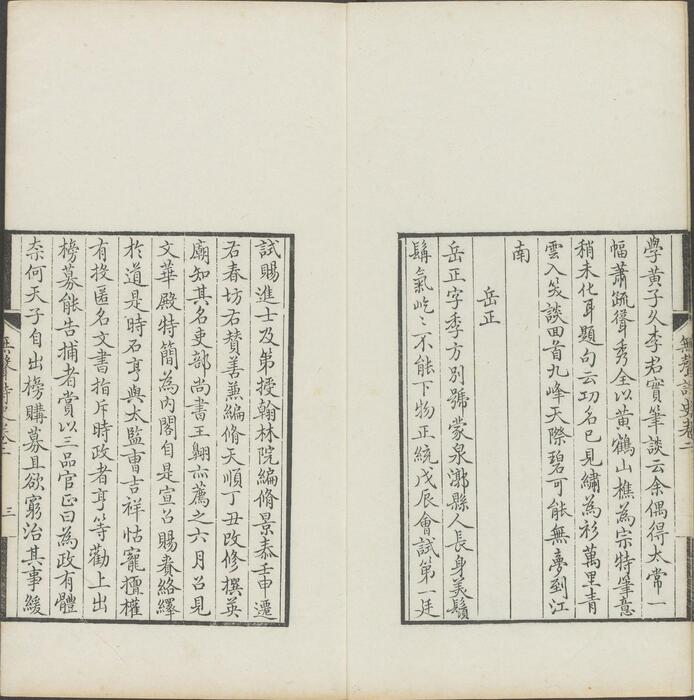 學黃子久李君實筆談云余偶得太常一
幅蕭疏聳秀全以黃鶴山樵為宗特筆意
稍未化耳題句云功名已見繡為衫萬里青
雲入笑談回首九峰天際碧可能無夢到江
南
岳正
岳正字季方別號蒙泉漷縣人長身美鬚
髯氣屹〻不能下物正統戊辰會試第一廷
試賜進士及第授翰林院編脩景泰壬申遷
右春坊右贊善兼編脩天順丁丑改修撰英
廟知其名吏部尚書王翺亦薦之六月召見
文華殿特簡為內閣自是宣召賜賚絡繹
於道是時石亨與太監曹吉祥怙寵擅權
有投匿名文書指斥時政者亨等勸上出
榜募能告捕者賞以三品官正曰為政有體
柰何天子自出榜購募且欲窮治其事緩
無聲詩史卷二
三